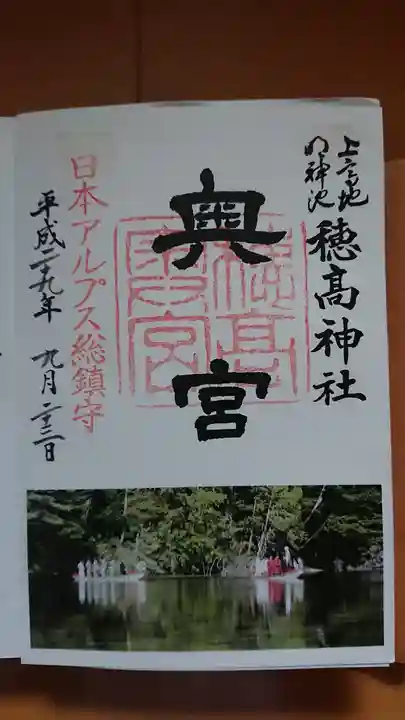 上高地
明神池
穂高神社
奥宮
穂高
奥宮
日本アルプス総鎮守
平成二十九年 九月二十三日